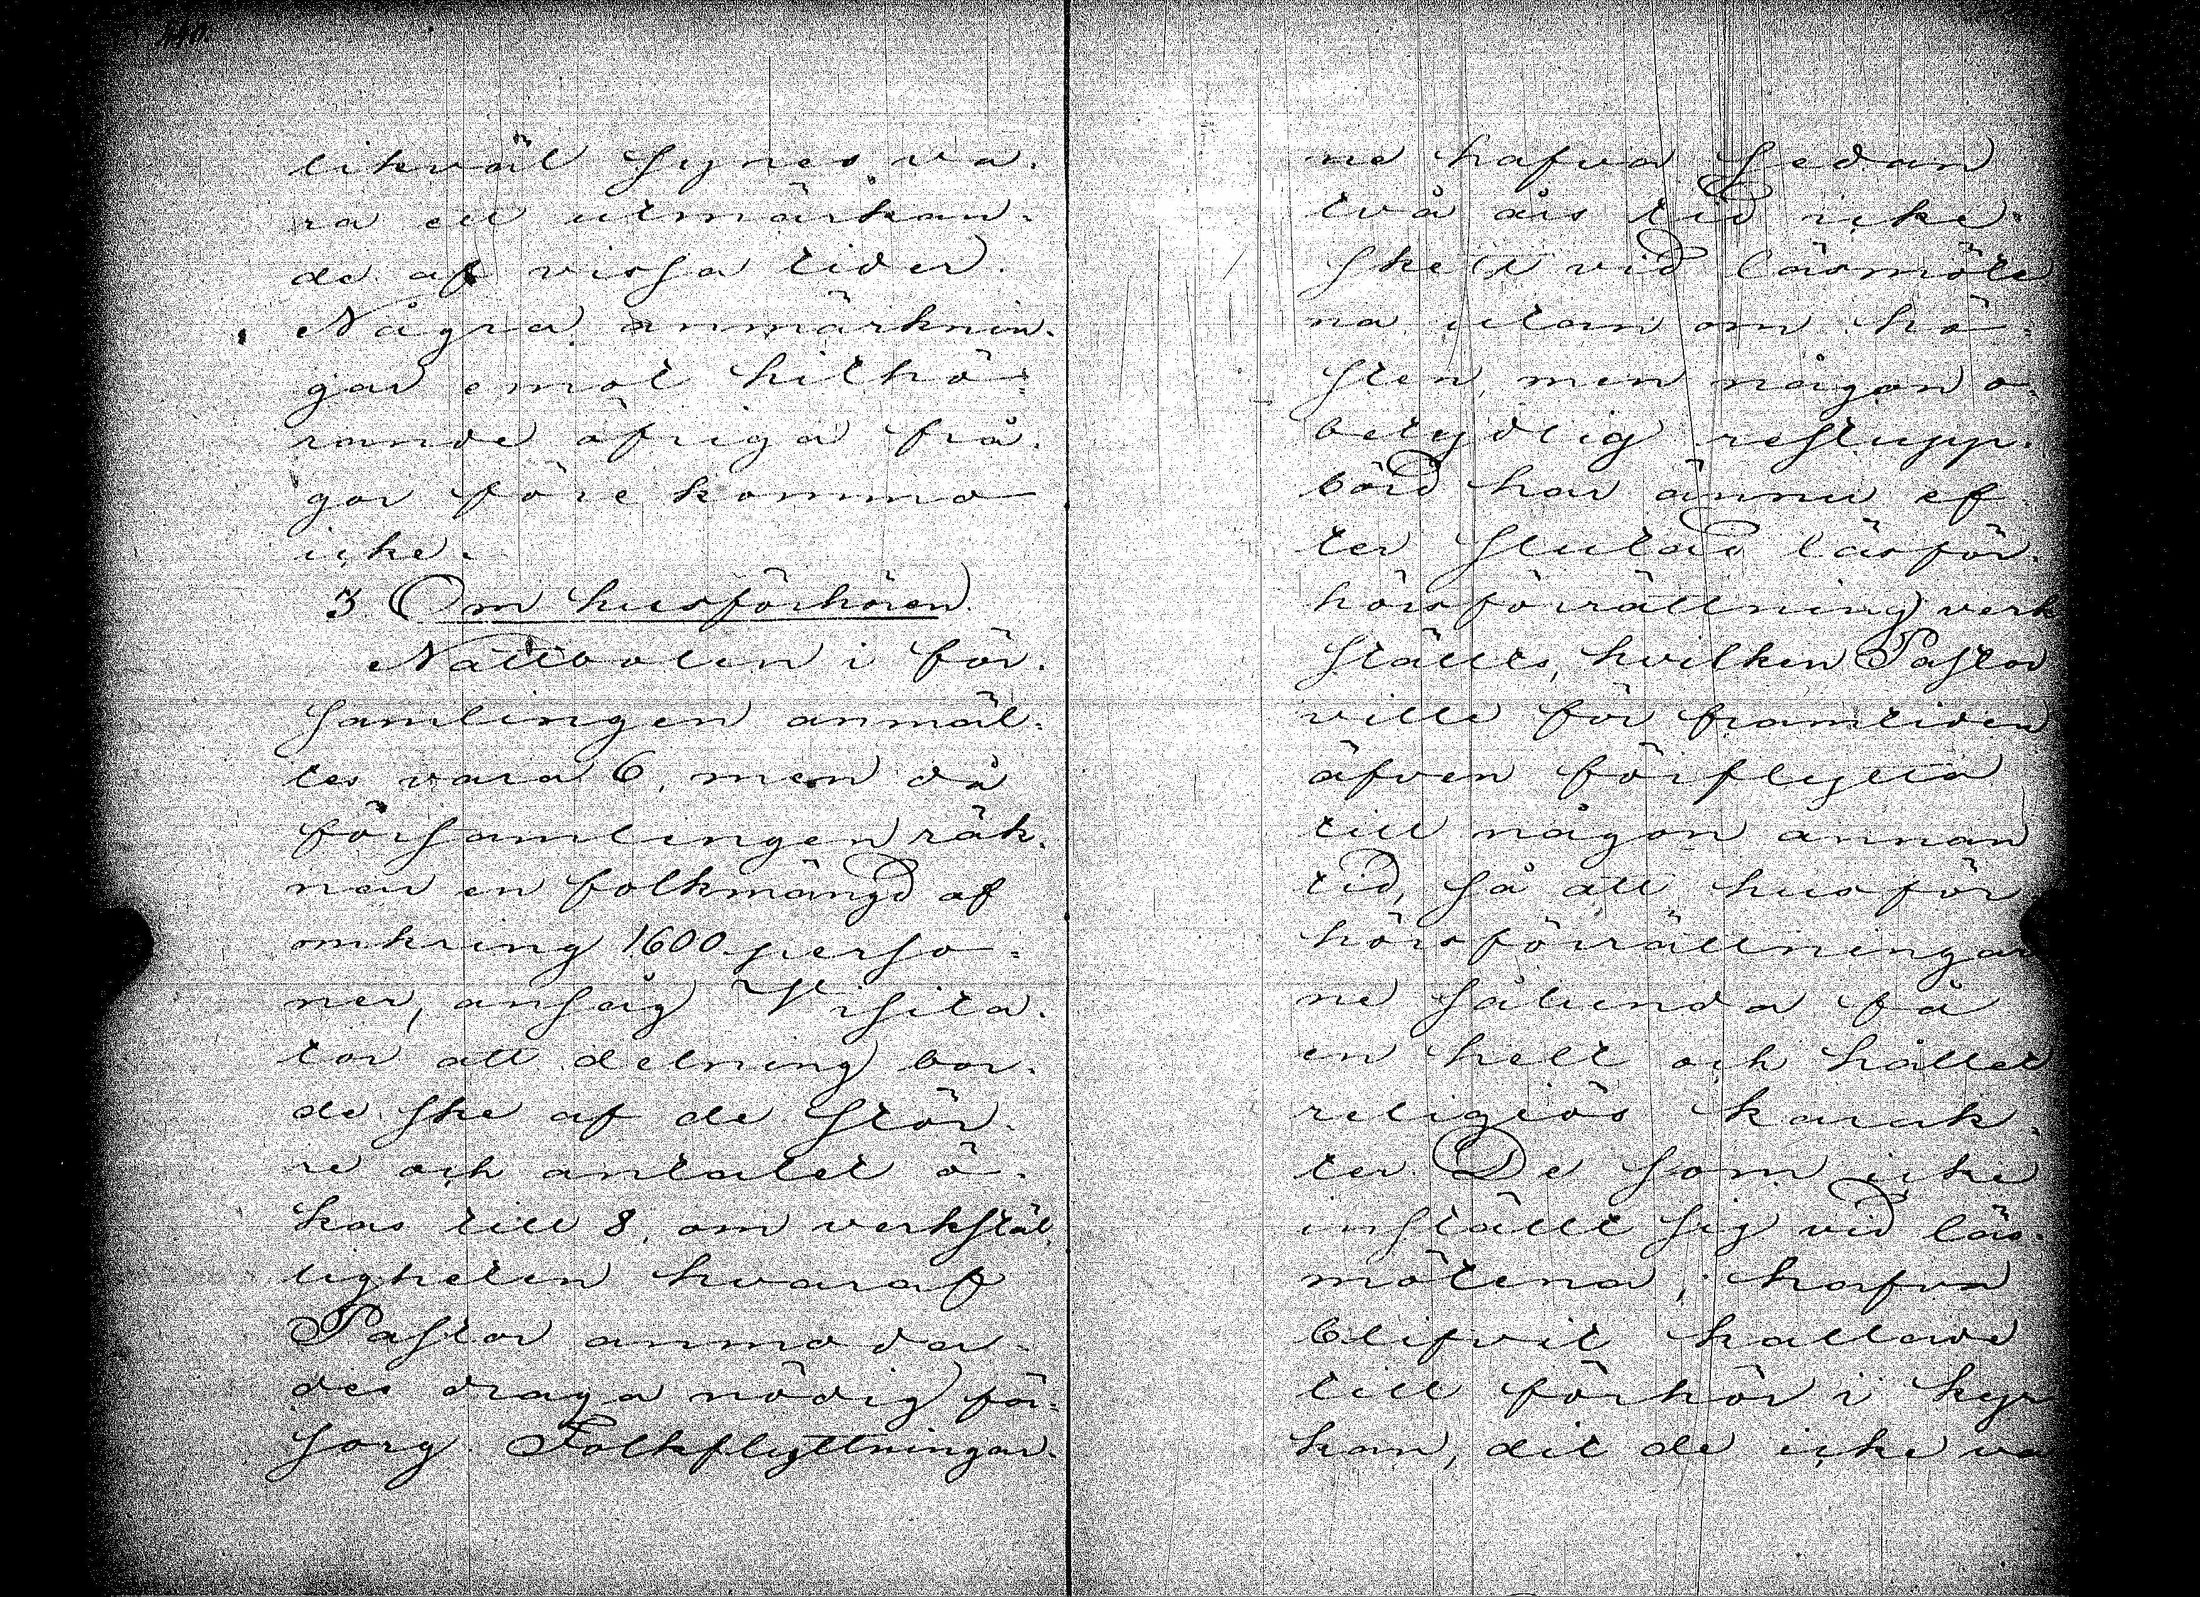 likväl synes va-
ra ett utmärkan-
de af vissa tider.
Några anmärknin-
gar emot hithö-
rande öfriga frå-
gor före kommo
icke.
3 Om husförhören.
Nattvolen i för-
samlingen anmäl-
tes vara 6, men då
församlingen räk-
nar en folkmängd af
omkring 1600 perso-
ner, ansåg Visita-
tor att delning bor-
de ske af de stör-
re och antalet ö-
kas till 8, om verkstäl-
ligheten hvaraf
Pastor anmoda-
des draga nödig för-
sorg. Folkflyttningar-
ne hafva sedan
två års tid icke
skett vid läsmöte
na utan om hö-
sten, men någon o-
betydlig restupp-
börd har ännu ef
ter slutad läsför-
hörsförrättning verk
ställts, hvilken Pastor
ville för framtiden
äfven förflytta
till någon annan
tid, så att husför
hörsförrättningar
ne sålunda få
en helt och hållet
religiös karak-
ter. De som icke
inställt sig vid läs-
mötena, hafva
blifvit kallade
till förhör i kyr
kan, dit de icke va